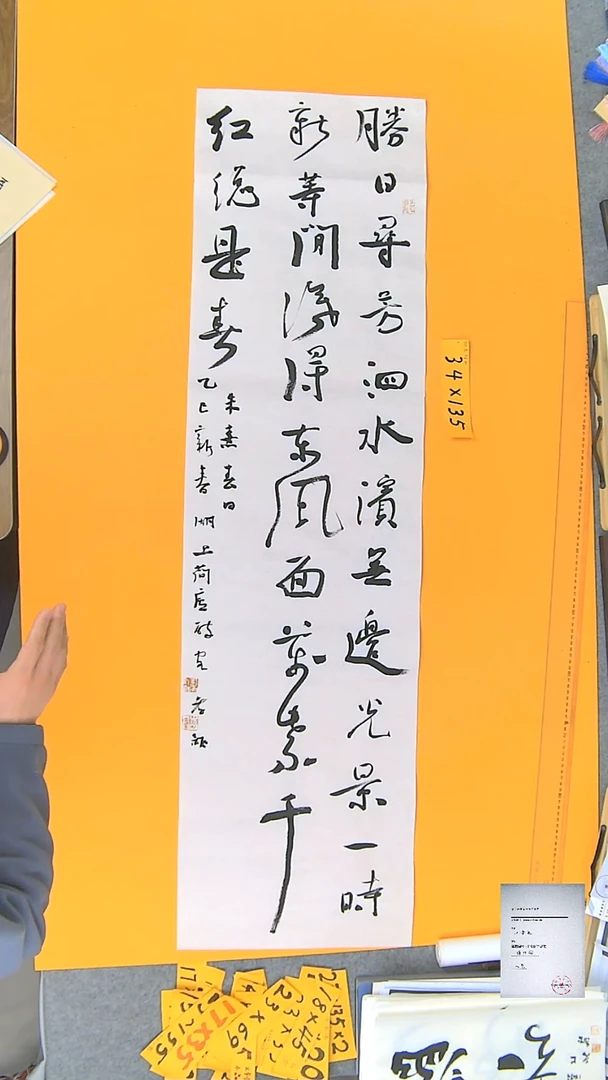 勝日尋芳泗水濱無邊光景一時
新等閒識得東風面萬紫千
紅總是春
朱熹春日
乙巳新春湖上
34×135
17×35